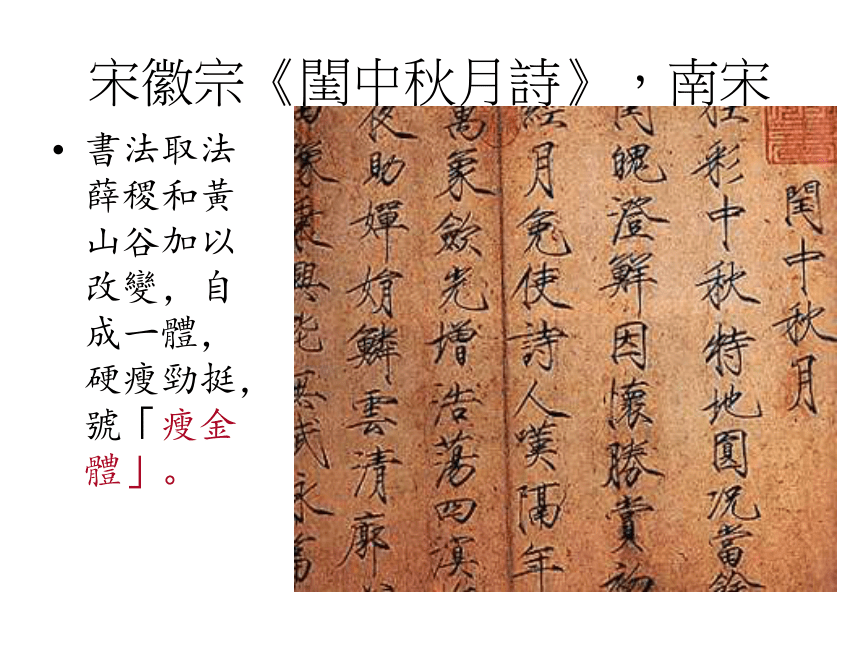 宋徽宗《閏中秋月詩》,南宋
• 書法取法
薛稷和黃
山谷加以
改變,自
成一體,
硬瘦勁挺,
號「瘦金
體」。
閏中秋月
桂彩中秋特地圓况當餘
閏魄澄鮮因懷勝賞初
經月免使詩人嘆隔年
萬象歛光增浩蕩四溟
夜助嬋娟鱗雲清廓
乘興能無賦詠篇